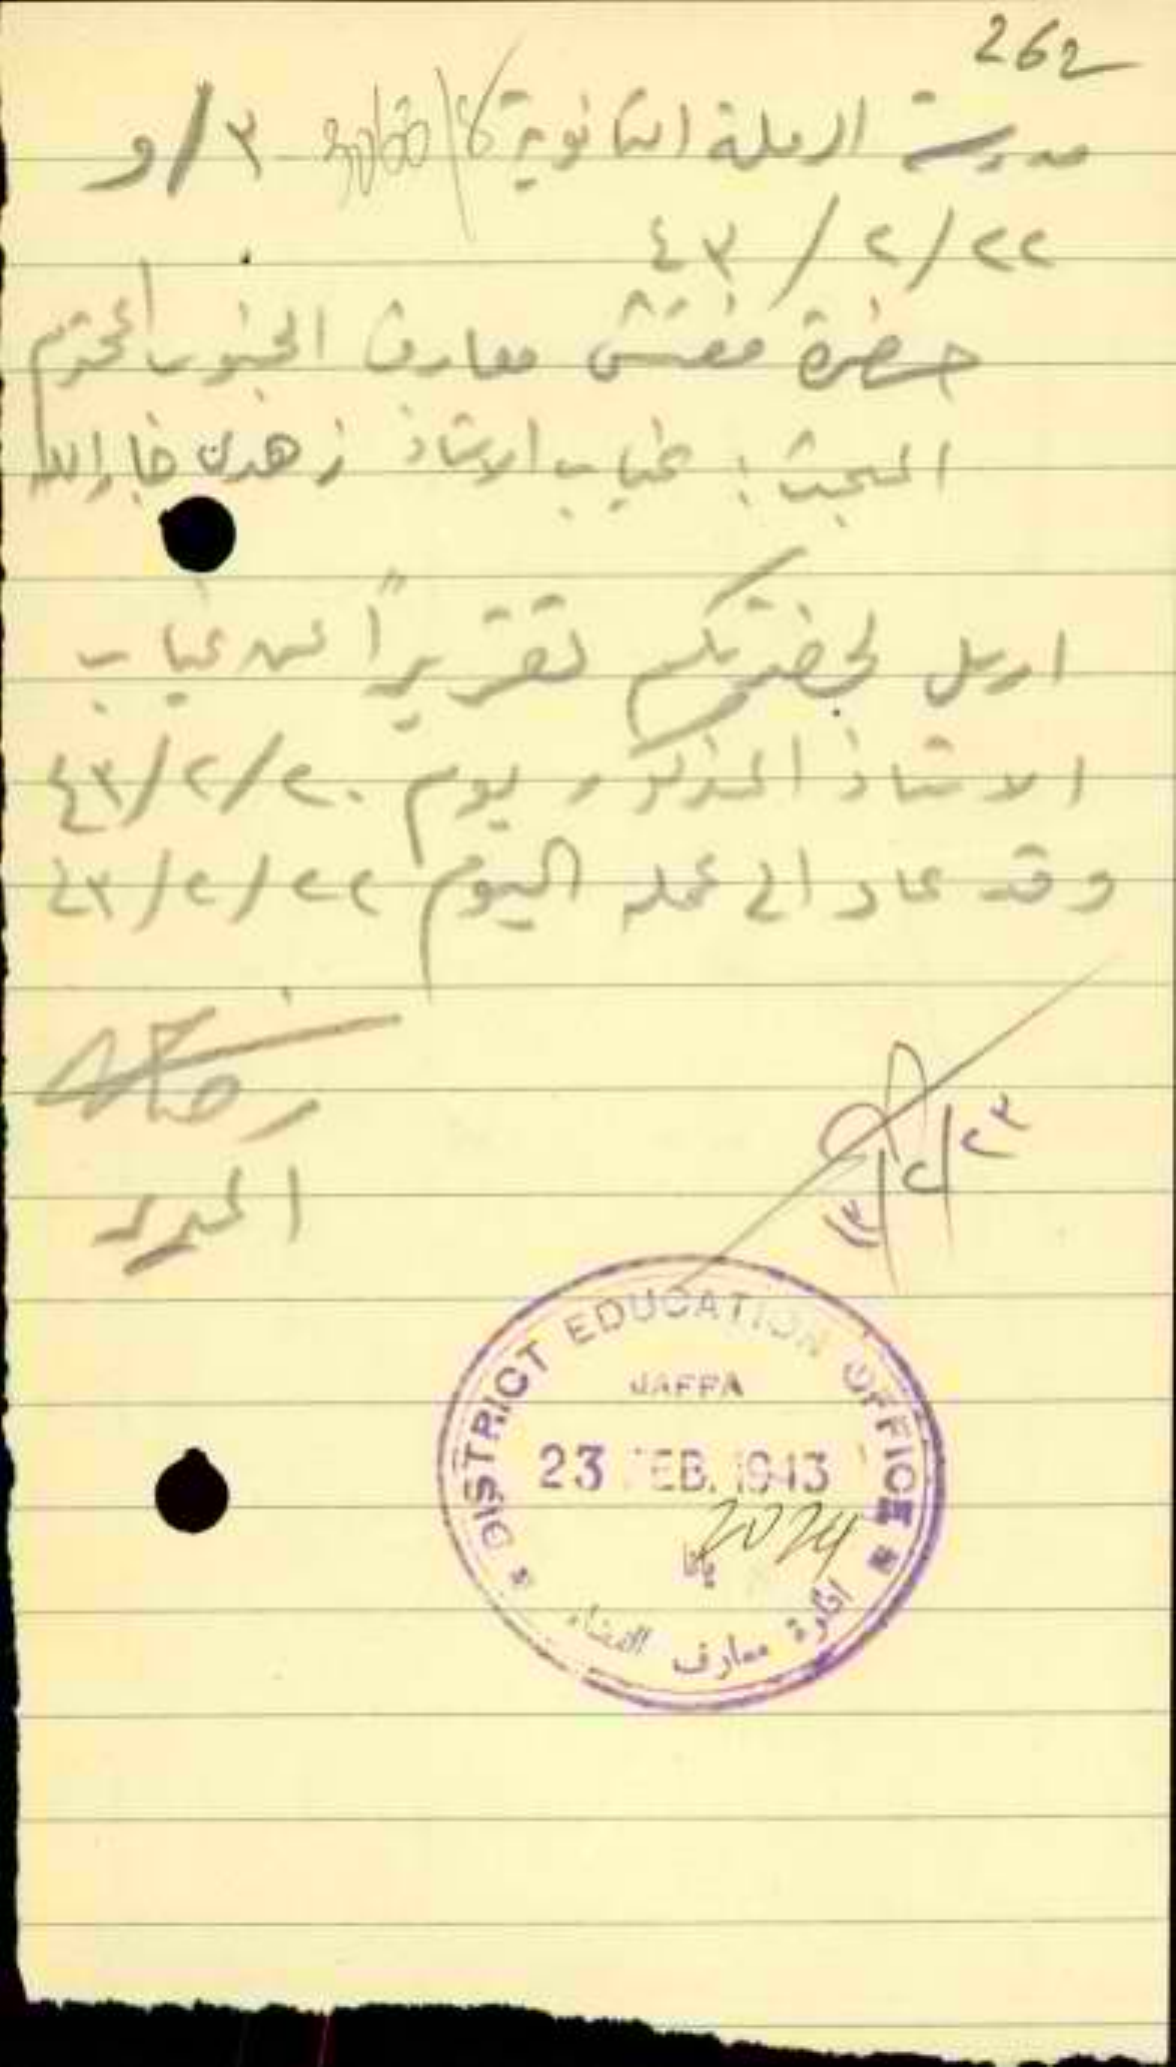 262
مدرسة الرملة الثانوية ٣/و
٢٢/٢/٤٣
حضرة مفتش معارف الجنوب المحترم
المبحث: غياب الاستاذ زهدي جارالله
ارسل لحضرتكم تقريراً عن غياب
الاستاذ المذكور يوم ٢٠/٢/٤٣
وقد عاد الى عمله اليوم ٢٢/٢/٤٣
المدير
DISTRICT EDUCATION OFFICE
JAFFA
23 FEB. 1943
2024
يافا
معارف